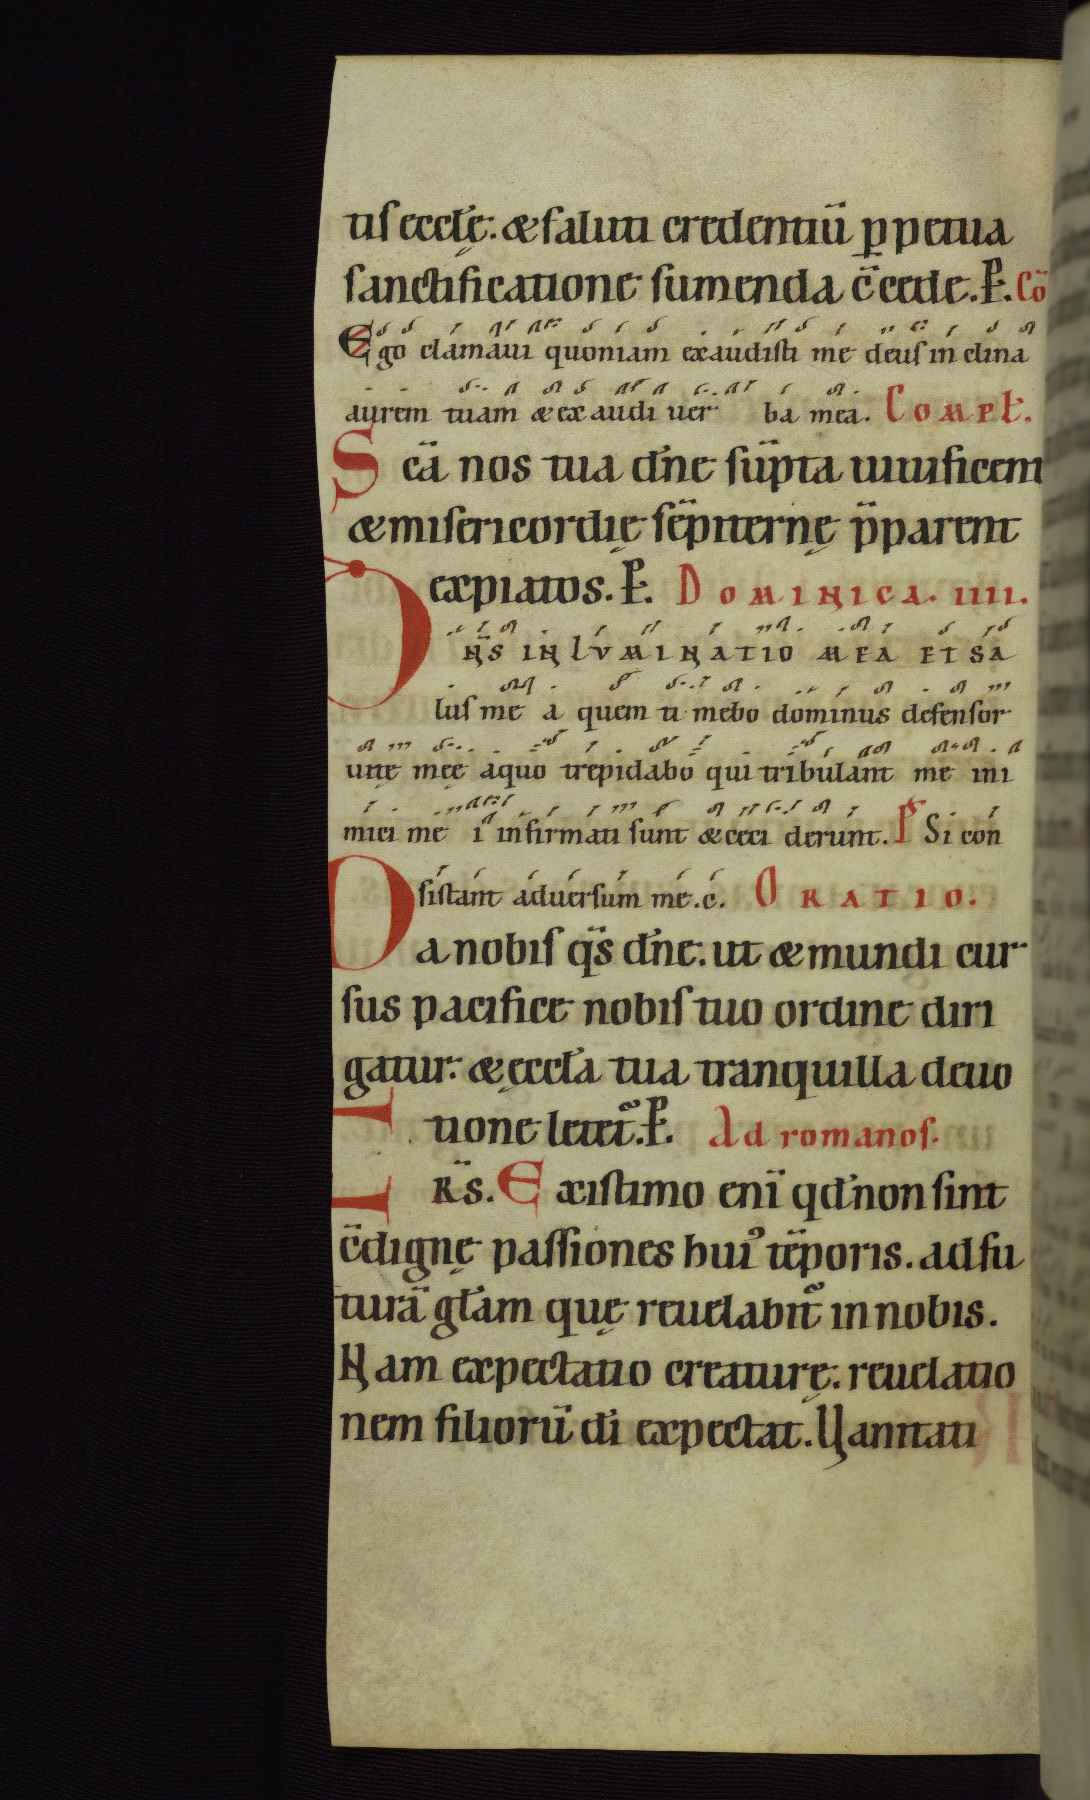 tis eccłę: & saluti credentiū ꝑpetua
sanctificatione sumenda c̄cede. P̄. Cō
Ego clamaui quoniam exaudisti me deus in clina
aurem tuam & ex audi uer ba mea. Compł.
Sc̄a nos tua dn̄e sūpta uiuificent
& misericordię sēpiternę p̄parent
expiatos. P̄. Dominica. IIII.
Dn̄s inluminatio mea et sa
lus me a quem ti mebo dominus defensor
uitę meę a quo trepidabo qui tribulant me ini
mici me i infirmati sunt & ceci derunt. Ps Si con
sistant aduersum me. c. Oratio.
Da nobis qs̄ dn̄e: ut & mundi cur
sus pacifice nobis tuo ordine diri
gatur: & ęccła tua tranquilla deuo
tione letet᷑. P̄. Ad romanos.
FRS̄. Existimo enī qd̄ non sint
c̄dignę passiones hui᾽ tēporis. ad fu
turā głam quę reuelabit᷑ in nobis.
Nam expectatio creaturę: reuelatio
nem filiorū dī expectat. Uanitati